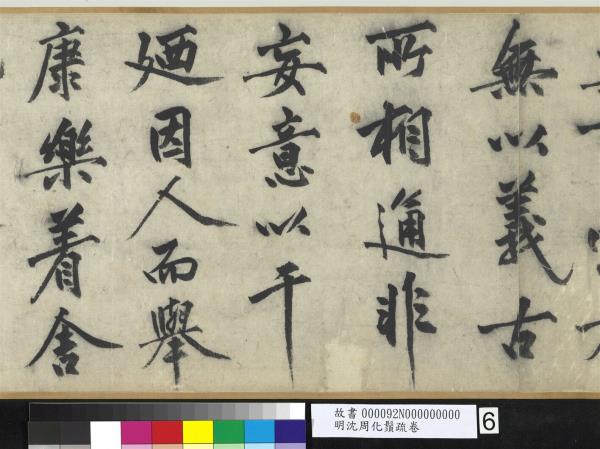 無以義古
所相通非
妄意以干
廼因人而舉
康樂着舍
故書 000092N000000000
明沈周化鬚疏卷
6